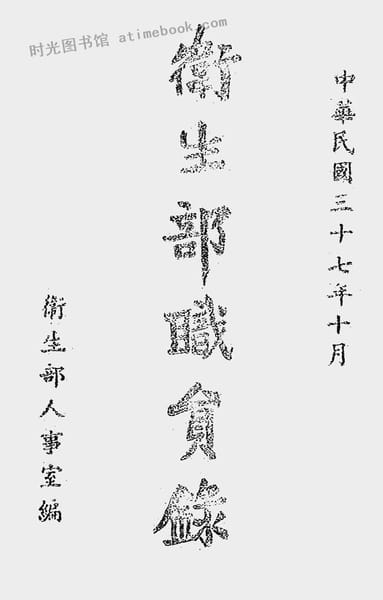 时光图书馆 atimebook.com
中華民國三十七年十月
衛生部職員錄
衛生部人事室編